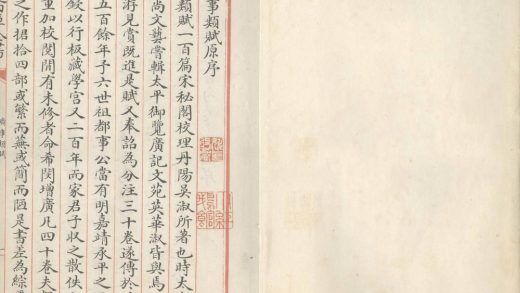 事類賦原序
類賦一百篇宋秘閣校理丹陽吳淑所著也時太
尚文藝嘗輯太平御覽廣記文苑英華淑皆與焉
游見賞既進是賦又奉詔為分注三十卷遂傳於
五百餘年予六世祖都事公當有明嘉靖承平之
鋟以行板藏學宮又二百年而家君子收之散佚
重加校閱間有未修者命希閔增廣凡四十卷夫
之作捃拾四部或繁而蕪或簡而陋是書差為綜